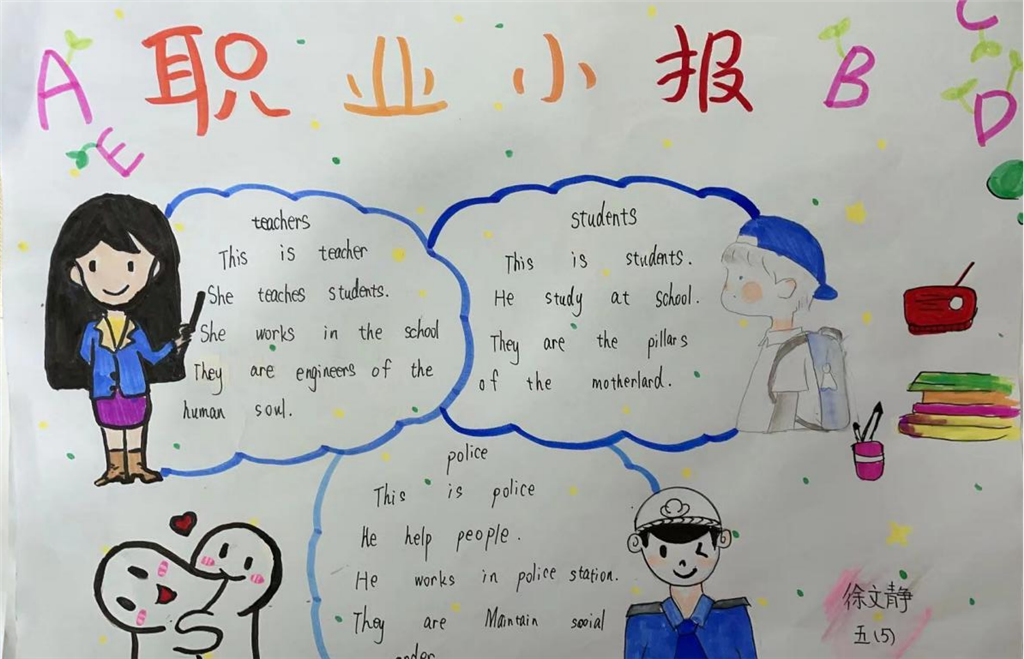 A
职业小报
B
C
D
E
teachers
This is teacher
She teaches students.
She works in the school
They are engineers of the
human soul.
students
This is students.
He study at school.
They are the pillars
of the motherland.
police
This is police
He help people.
He works in police station.
They are Maintain social
order
徐文静
五(5)